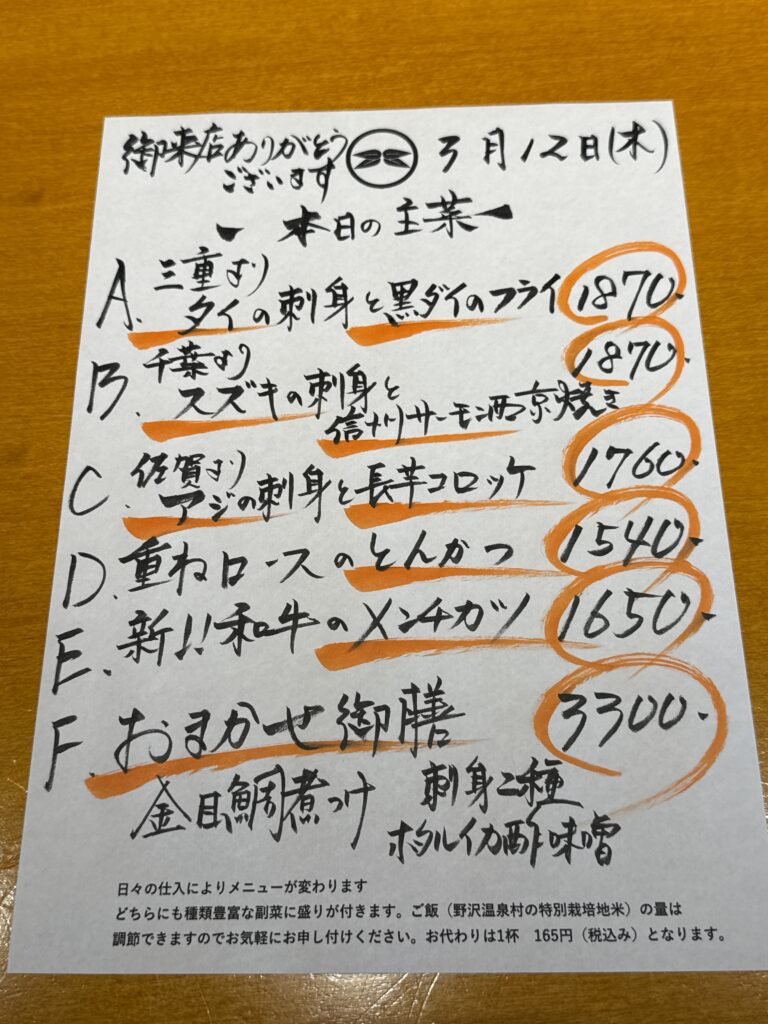 御来店ありがとう
ございます
3月12日(木)
本日の主菜
A. 三重より
タイの刺身と黒ダイのフライ 1870.
B. 千葉より
スズキの刺身と 1870.
信州サーモン西京焼き
C. 佐賀より
アジの刺身と長芋コロッケ 1760.
D. 重ねロースのとんかつ 1540.
E. 新!!和牛のメンチカツ 1650.
F. おまかせ御膳 3300.
金目鯛煮つけ 刺身二種
ホタルイカ酢味噌
日々の仕入によりメニューが変わります
どちらにも種類豊富な副菜に盛りが付きます。ご飯（野沢温泉村の特別栽培地米）の量は
調節できますのでお気軽にお申し付けください。お代わりは1杯 165円（税込み）となります。